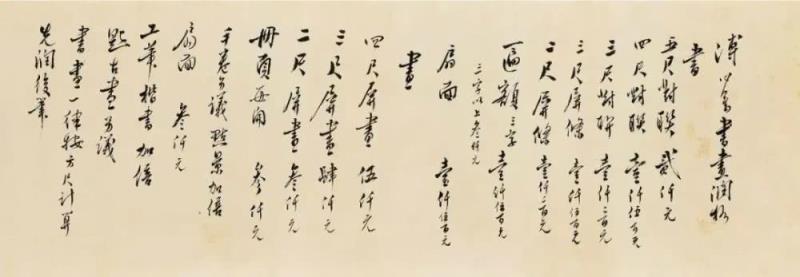 溥心畬書畫潤格
書
五尺對聯 貳仟元
四尺對聯 壹仟伍百元
三尺對聯 壹仟二百元
三尺屏條 壹仟伍百元
二尺屏條 壹仟二百元
匾額 三字 壹仟伍百元
三字以上叁仟元
扇面 壹仟伍百元
畫
四尺屏畫 伍仟元
三尺屏畫 肆仟元
二尺屏畫 叁仟元
冊頁每開 叁仟元
手卷另議點景加倍
扇面 叁仟元
工筆楷書加倍
點古畫另議
書畫一律按方尺計算
先潤後筆